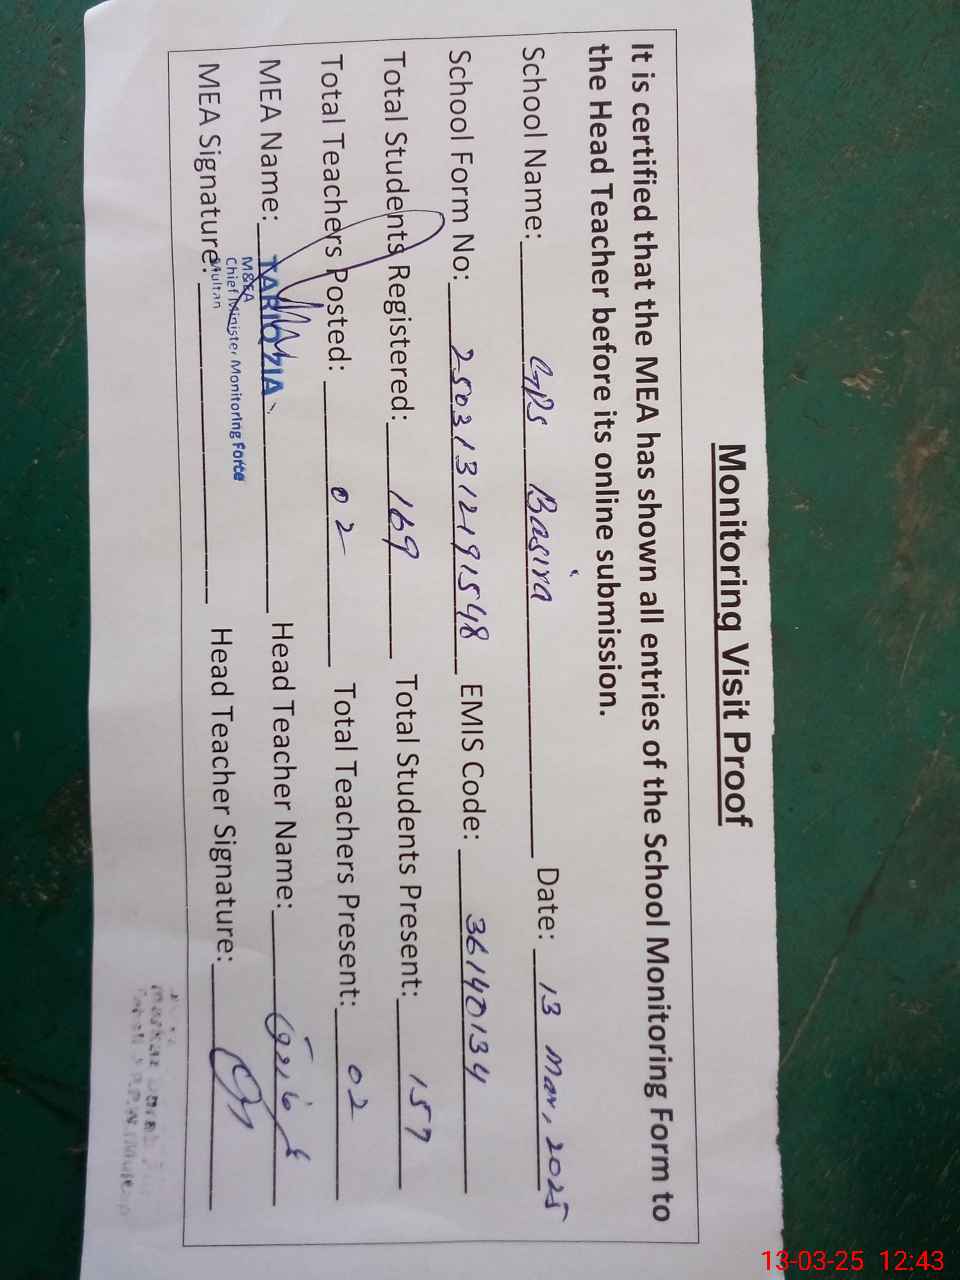 Monitoring Visit Proof
It is certified that the MEA has shown all entries of the School Monitoring Form to
the Head Teacher before its online submission.
School Name: GPS Basira Date: 13 Mar, 2025
School Form No: 25031312191548 EMIS Code: 36140134
Total Students Registered: 169 Total Students Present: 157
Total Teachers Posted: 02 Total Teachers Present: 02
MEA Name: TARIQ ZIA Head Teacher Name:
M&EA
Chief Minister Monitoring Force
Multan
MEA Signature: Head Teacher Signature:
13-03-25 12:43